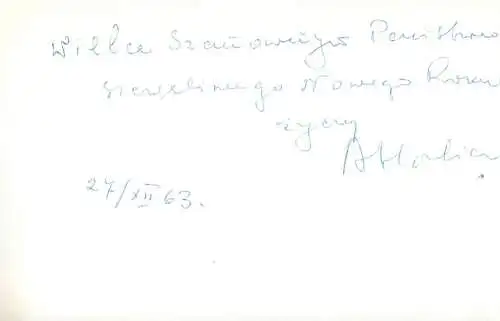 Wielce Szanownych Państwu
szczęśliwego Nowego Roku
życzy
27/XII 63.